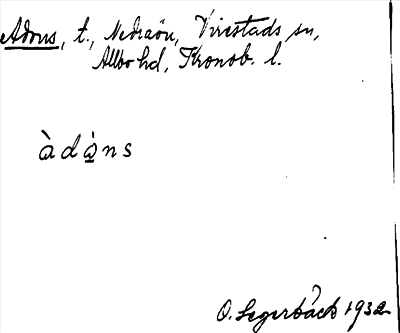 Adms, t., Nedraön, Virestads sn,
Allbo hd, Kronob. l.
àdà̲ns
O. Segerbäck 1932